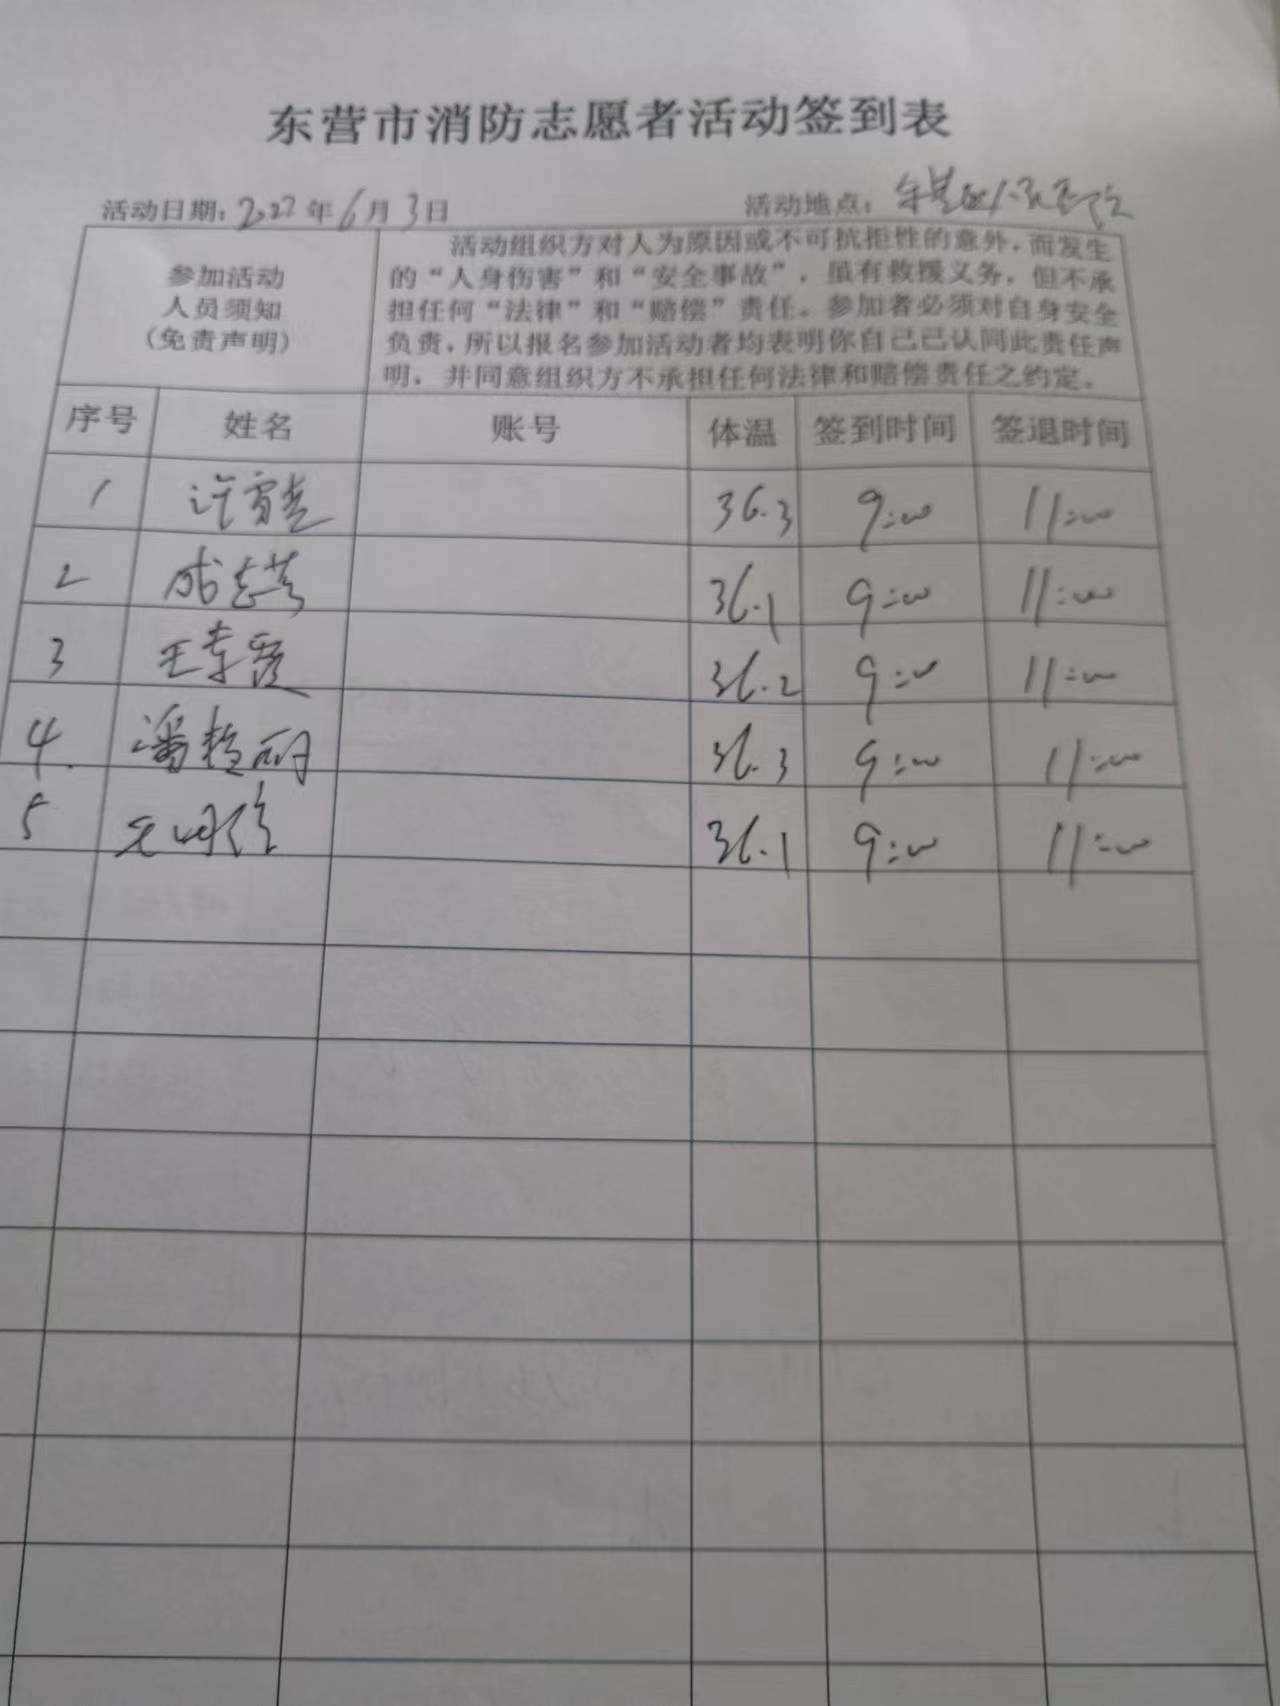 东营市消防志愿者活动签到表
活动日期：2022年6月3日 活动地点：
参加活动
人员须知
（免责声明）
活动组织方对人为原因或不可抗拒性的意外，而发生
的“人身伤害”和“安全事故”，虽有救援义务，但不承
担任何“法律”和“赔偿”责任。参加者必须对自身安全
负责，所以报名参加活动者均表明你自己已认同此责任声
明，并同意组织方不承担任何法律和赔偿责任之约定。
序号 姓名 账号 体温 签到时间 签退时间
1 36.3 9:00 11:00
2 36.1 9:00 11:00
3 王 36.2 9:00 11:00
4. 潘 36.3 9:00 11:00
5 36.1 9:00 11:00